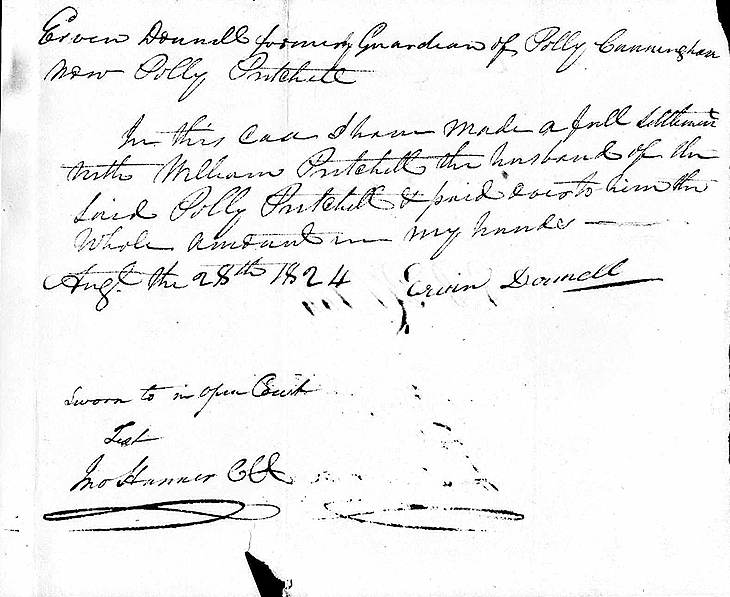 Erven Donnell formerly Guardian of Polly Cunningham
now Polly Pritchett
In this Case I have made a full settlement
with William Pritchett the husband of the
said Polly Pritchett & paid over to him the
whole amount in my hands —
Augt. the 28th 1824 Ervin Donnell
Sworn to in open Court
Test
Jno Hanner CC